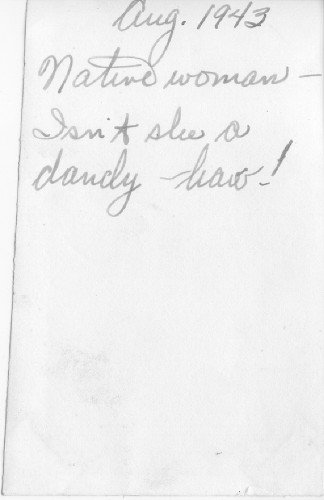 Aug. 1943
Native woman —
Isn't she a
dandy - haw!